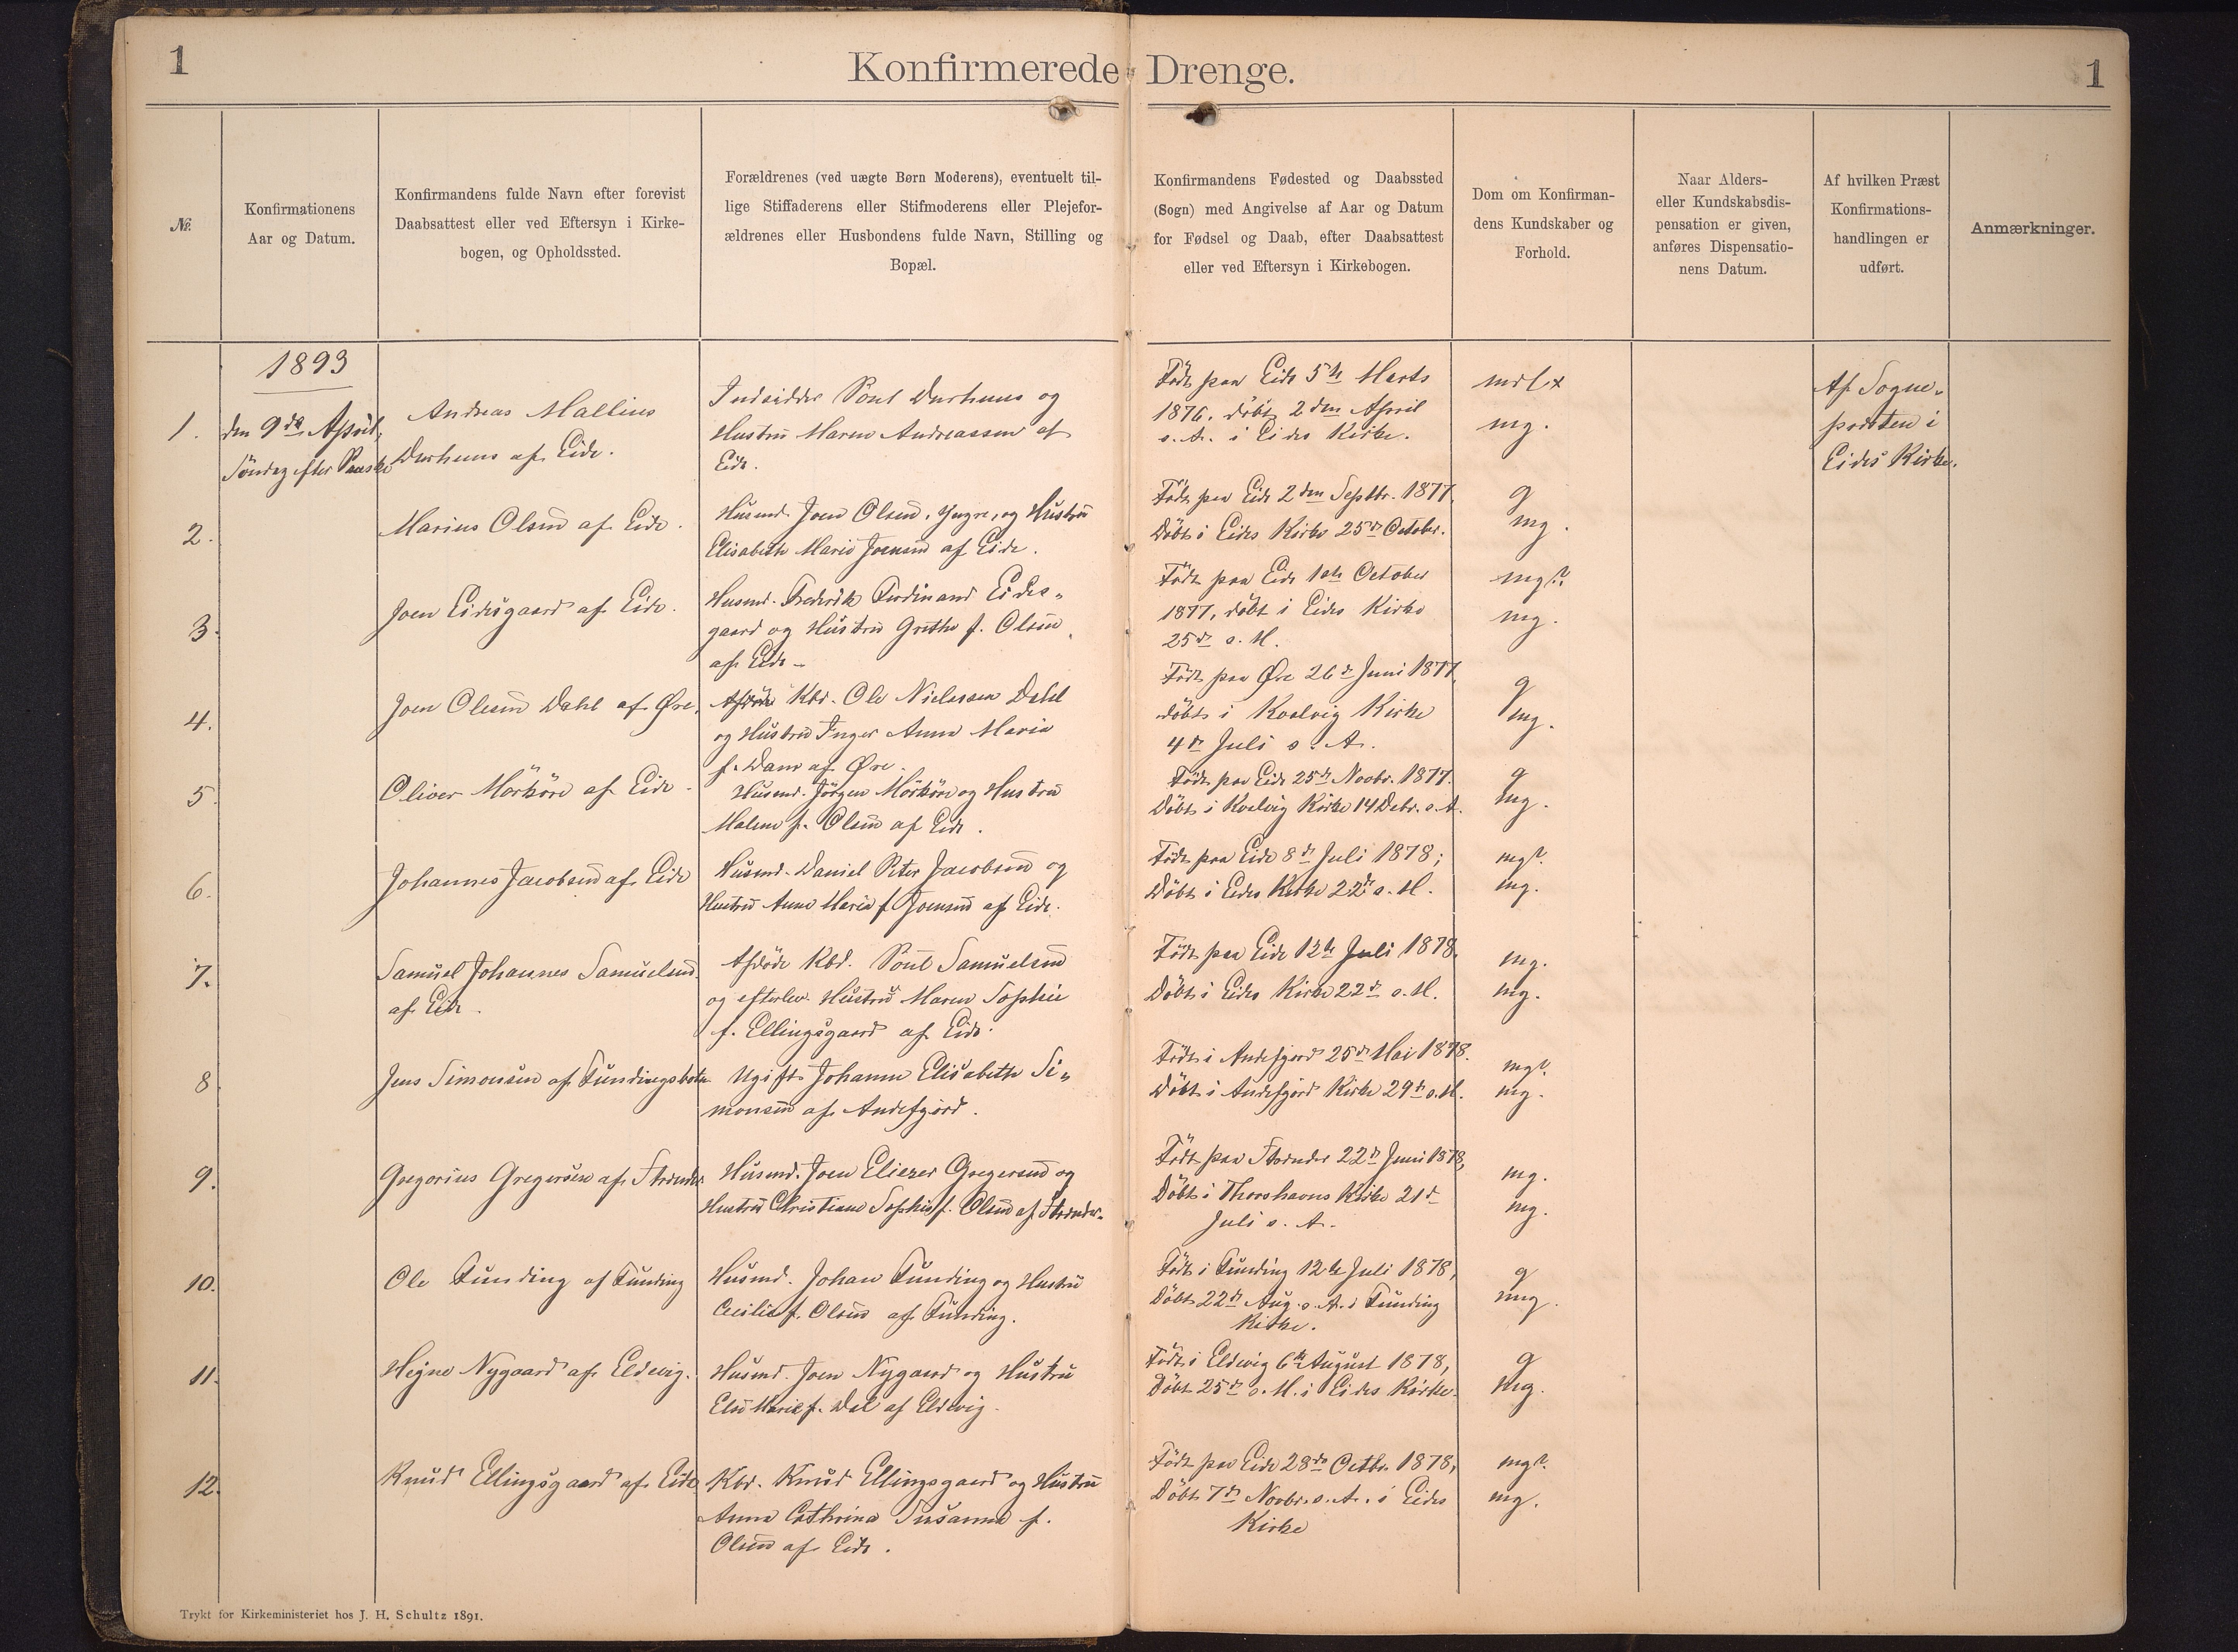 1
Konfirmerede Drenge.
1
№.
Konfirmationens
Aar og Datum.
Konfirmandens fulde Navn efter forevist
Daabsattest eller ved Eftersyn i Kirke-
bogen, og Opholdssted.
Forældrenes (ved uægte Børn Moderens), eventuelt til-
lige Stiffaderens eller Stifmoderens eller Plejefor-
ældrenes eller Husbondens fulde Navn, Stilling og
Bopæl.
Konfirmandens Fødested og Daabssted
(Sogn) med Angivelse af Aar og Datum
for Fødsel og Daab, efter Daabsattest
eller ved Eftersyn i Kirkebogen.
Dom om Konfirman-
dens Kundskaber og
Forhold.
Naar Alders-
eller Kundskabsdis-
pensation er given,
anføres Dispensatio-
nens Datum.
Af hvilken Præst
Konfirmations-
handlingen er
udført.
Anmærkninger.
1893
1.
den 9de April,
Söndag efter Paaske
Andreas Mallius
Durhuus af Eide.
Indsidder Poul Durhuus og
Hustrü Maren Andreassen af
Eide.
Födt paa Eide 5te Marts
1876, döbt 2den April
s. A. i Eides Kirke.
mdl x
mg.
Af Sogne-
præsten i
Eides Kirke.
2.
Marius Olsen af Eide.
Husmd. Joen Olsen, Yngre, og Hustrü
Elisabeth Marie Joensen af Eide.
Födt paa Eide 2den Septbr. 1877.
Döbt i Eides Kirke 25de October.
g
mg.
3.
Joen Eidesgaard af Eide.
Husmd. Frederik Ferdinand Eides-
gaard og Hustrü Grethe f. Olsen
af Eide
Födt paa Eide 1ste October
1877, döbt i Eides Kirke
25de s. M.
mg?
mg.
4.
Joen Olesen Dahl af Øre.
Afdöde Kbd. Ole Nielassen Dahl
og Hustrü Inger Anna Maria
f. Dam af Øre.
Födt paa Øre 26de Juni 1877,
döbt i Kvalvig Kirke
4de Juli s. A.
g
mg.
5
Oliver Mörköre af Eide.
Husmd. Jörgen Mörköre og Hustrü
Malene f. Olsen af Eide.
Födt paa Eide 25de Novbr. 1877.
Döbt i Kvalvig Kirke 14 Debr. s. A.
g
mg.
6.
Johannes Jacobsen af Eide
Husmd. Daniel Peter Jacobsen og
Hustrü Anne Maria f. Joensen af Eide.
Födt paa Eide 8de Juli 1878;
Döbt i Eides Kirke 22de s. M.
mg?
mg.
7.
Samuel Johannes Samuelsen
af Eide.
Afdöde Kbd. Poul Samuelsen
og efterlev. Hustrü Maren Sophie
f. Ellingsgaard af Eide.
Födt paa Eide 12te Juli 1878.
Döbt i Eides Kirke 22de s. M.
mg.
mg.
8
Jens Simonsen af Fundingsbotn
Ugift Johanne Elisabeth Si-
monsen af Andefjord.
Födt i Andefjord 25de Mai 1878.
Döbt i Andefjord Kirke 29de s. M.
mg?
mg.
9.
Gregorius Gregersen af Strender
Husmd. Joen Eliezer Gregersen og
Hustrü Christiane Sophie f. Olsen af Strender.
Födt paa Strender 22de Juni 1878,
Döbt i Thorshavns Kirke 21de
Juli s. A.
mg.
mg.
10.
Ole Funding af Funding
Husmd. Johan Funding og Hustrü
Cecilia f. Olsen af Funding.
Födt i Funding 12te Juli 1878,
Döbt 22de Aug. s. A. i Funding
Kirke.
g
mg.
11.
Hejne Nygaard af Eldevig.
Husmd. Joen Nygaard og Hustrü
Else Marie f. Dal af Eldevig.
Födt i Eldevig 6te August 1878,
Döbt 25de s. M. i Eides Kirke.
g
mg.
12.
Knud Ellingsgaard af Eide
Kbd. Knud Ellingsgaard og Hustrü
Anna Cathrina Susanna f.
Olsen af Eide.
Födt paa Eide 28de Octbr. 1878,
Döbt 7de Novbr. s. A. i Eides
Kirke
mg?
mg.
Trykt for Kirkeministeriet hos J. H. Schultz 1891.